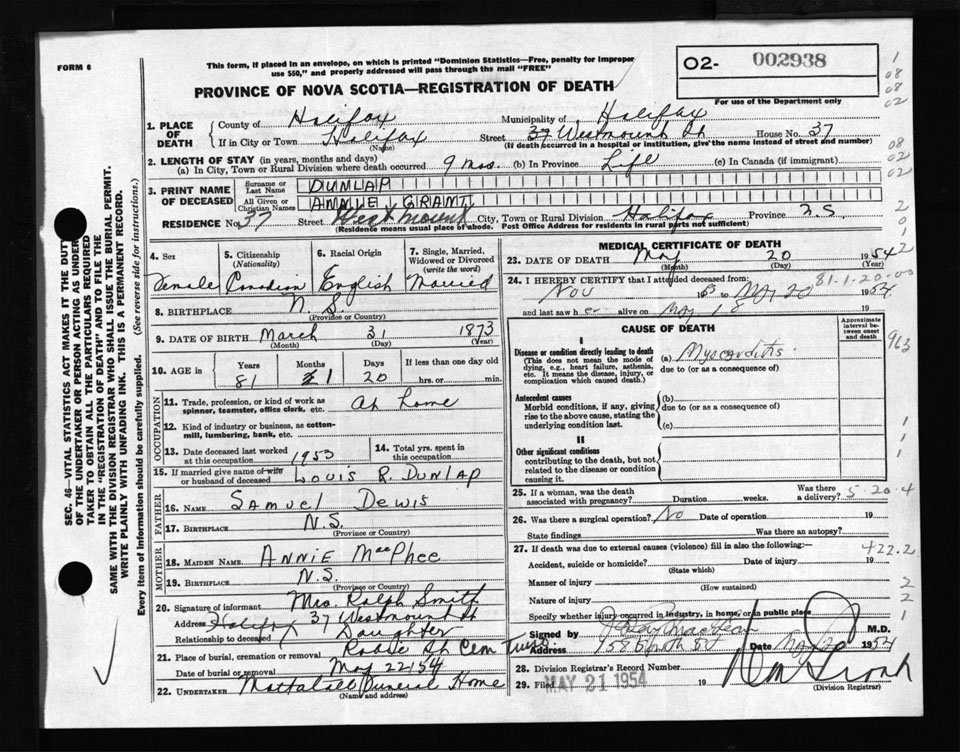 FORM 6
This form, if placed in an envelope, on which is printed "Dominion Statistics—Free, penalty for improper
use $50," and properly addressed will pass through the mail "FREE"
PROVINCE OF NOVA SCOTIA—REGISTRATION OF DEATH
O2- 002938
For use of the Department only
1. PLACE OF DEATH
County of Halifax Municipality of Halifax
If in City or Town Halifax Street 37 Westmount St House No. 37
(Name) (If death occurred in a hospital or institution, give the name instead of street and number)
2. LENGTH OF STAY (in years, months and days)
(a) In City, Town or Rural Division where death occurred 9 mos. (b) In Province Life (c) In Canada (if immigrant)
3. PRINT NAME OF DECEASED
Surname or Last Name DUNLAP
All Given or Christian Names ANNIE GRANT
RESIDENCE No. 37 Street Westmount City, Town or Rural Division Halifax Province N.S.
(Residence means usual place of abode. Post Office Address for residents in rural parts not sufficient)
4. Sex
5. Citizenship (Nationality)
6. Racial Origin
7. Single, Married, Widowed or Divorced (write the word)
Female Canadian English Married
8. BIRTHPLACE N.S.
(Province or Country)
9. DATE OF BIRTH March 31 1873
(Month) (Day) (Year)
10. AGE in Years Months Days If less than one day old
81 1 20 hrs. or min.
OCCUPATION
11. Trade, profession, or kind of work as spinner, teamster, office clerk, etc. At home
12. Kind of industry or business, as cotton-mill, lumbering, bank, etc.
13. Date deceased last worked at this occupation 1953
14. Total yrs. spent in this occupation
15. If married give name of wife or husband of deceased Louis R. Dunlap
FATHER
16. NAME Samuel Dewis
17. BIRTHPLACE N.S.
(Province or Country)
MOTHER
18. MAIDEN NAME Annie MacPhee
19. BIRTHPLACE N.S.
(Province or Country)
20. Signature of informant Mrs. Ralph Smith
Address Halifax 37 Westmount St
Relationship to deceased Daughter
21. Place of burial, cremation or removal Robie St Cem Truro
Date of burial or removal May 22/54
22. UNDERTAKER Mattatall Funeral Home
(Name and address)
MEDICAL CERTIFICATE OF DEATH
23. DATE OF DEATH May 20 1954
(Month) (Day) (Year)
24. I HEREBY CERTIFY that I attended deceased from: 81-1-20-00
Nov 1953 to May 20 1954
and last saw her alive on May 18 19
CAUSE OF DEATH
Approximate interval between onset and death
I
Disease or condition directly leading to death (a) Myocarditis
(This does not mean the mode of dying, e.g., heart failure, asthenia, etc. It means the disease, injury, or complication which caused death.)
due to (or as a consequence of)
Antecedent causes
Morbid conditions, if any, giving rise to the above cause, stating the underlying condition last.
(b)
due to (or as a consequence of)
(c)
II
Other significant conditions
contributing to the death, but not related to the disease or condition causing it.
25. If a woman, was the death associated with pregnancy? Duration weeks. Was there a delivery? 5-20-4
26. Was there a surgical operation? No Date of operation 19
State findings Was there an autopsy?
27. If death was due to external causes (violence) fill in also the following:— 422.2
Accident, suicide or homicide? Date of injury 19
(State which)
Manner of injury
(How sustained)
Nature of injury
Specify whether injury occurred in industry, in home, or in public place
Signed by M.D.
Address Date May 1954
28. Division Registrar's Record Number
29. Filed MAY 21 1954 19
(Division Registrar)
SEC. 46—VITAL STATISTICS ACT MAKES IT THE DUTY
OF THE UNDERTAKER OR PERSON ACTING AS UNDERTAKER TO OBTAIN ALL THE PARTICULARS REQUIRED
IN THE "REGISTRATION OF DEATH" AND TO FILE THE
SAME WITH THE DIVISION REGISTRAR WHO SHALL ISSUE THE BURIAL PERMIT.
WRITE PLAINLY WITH UNFADING INK. THIS IS A PERMANENT RECORD.
Every item of information should be carefully supplied. (See reverse side for instructions.)